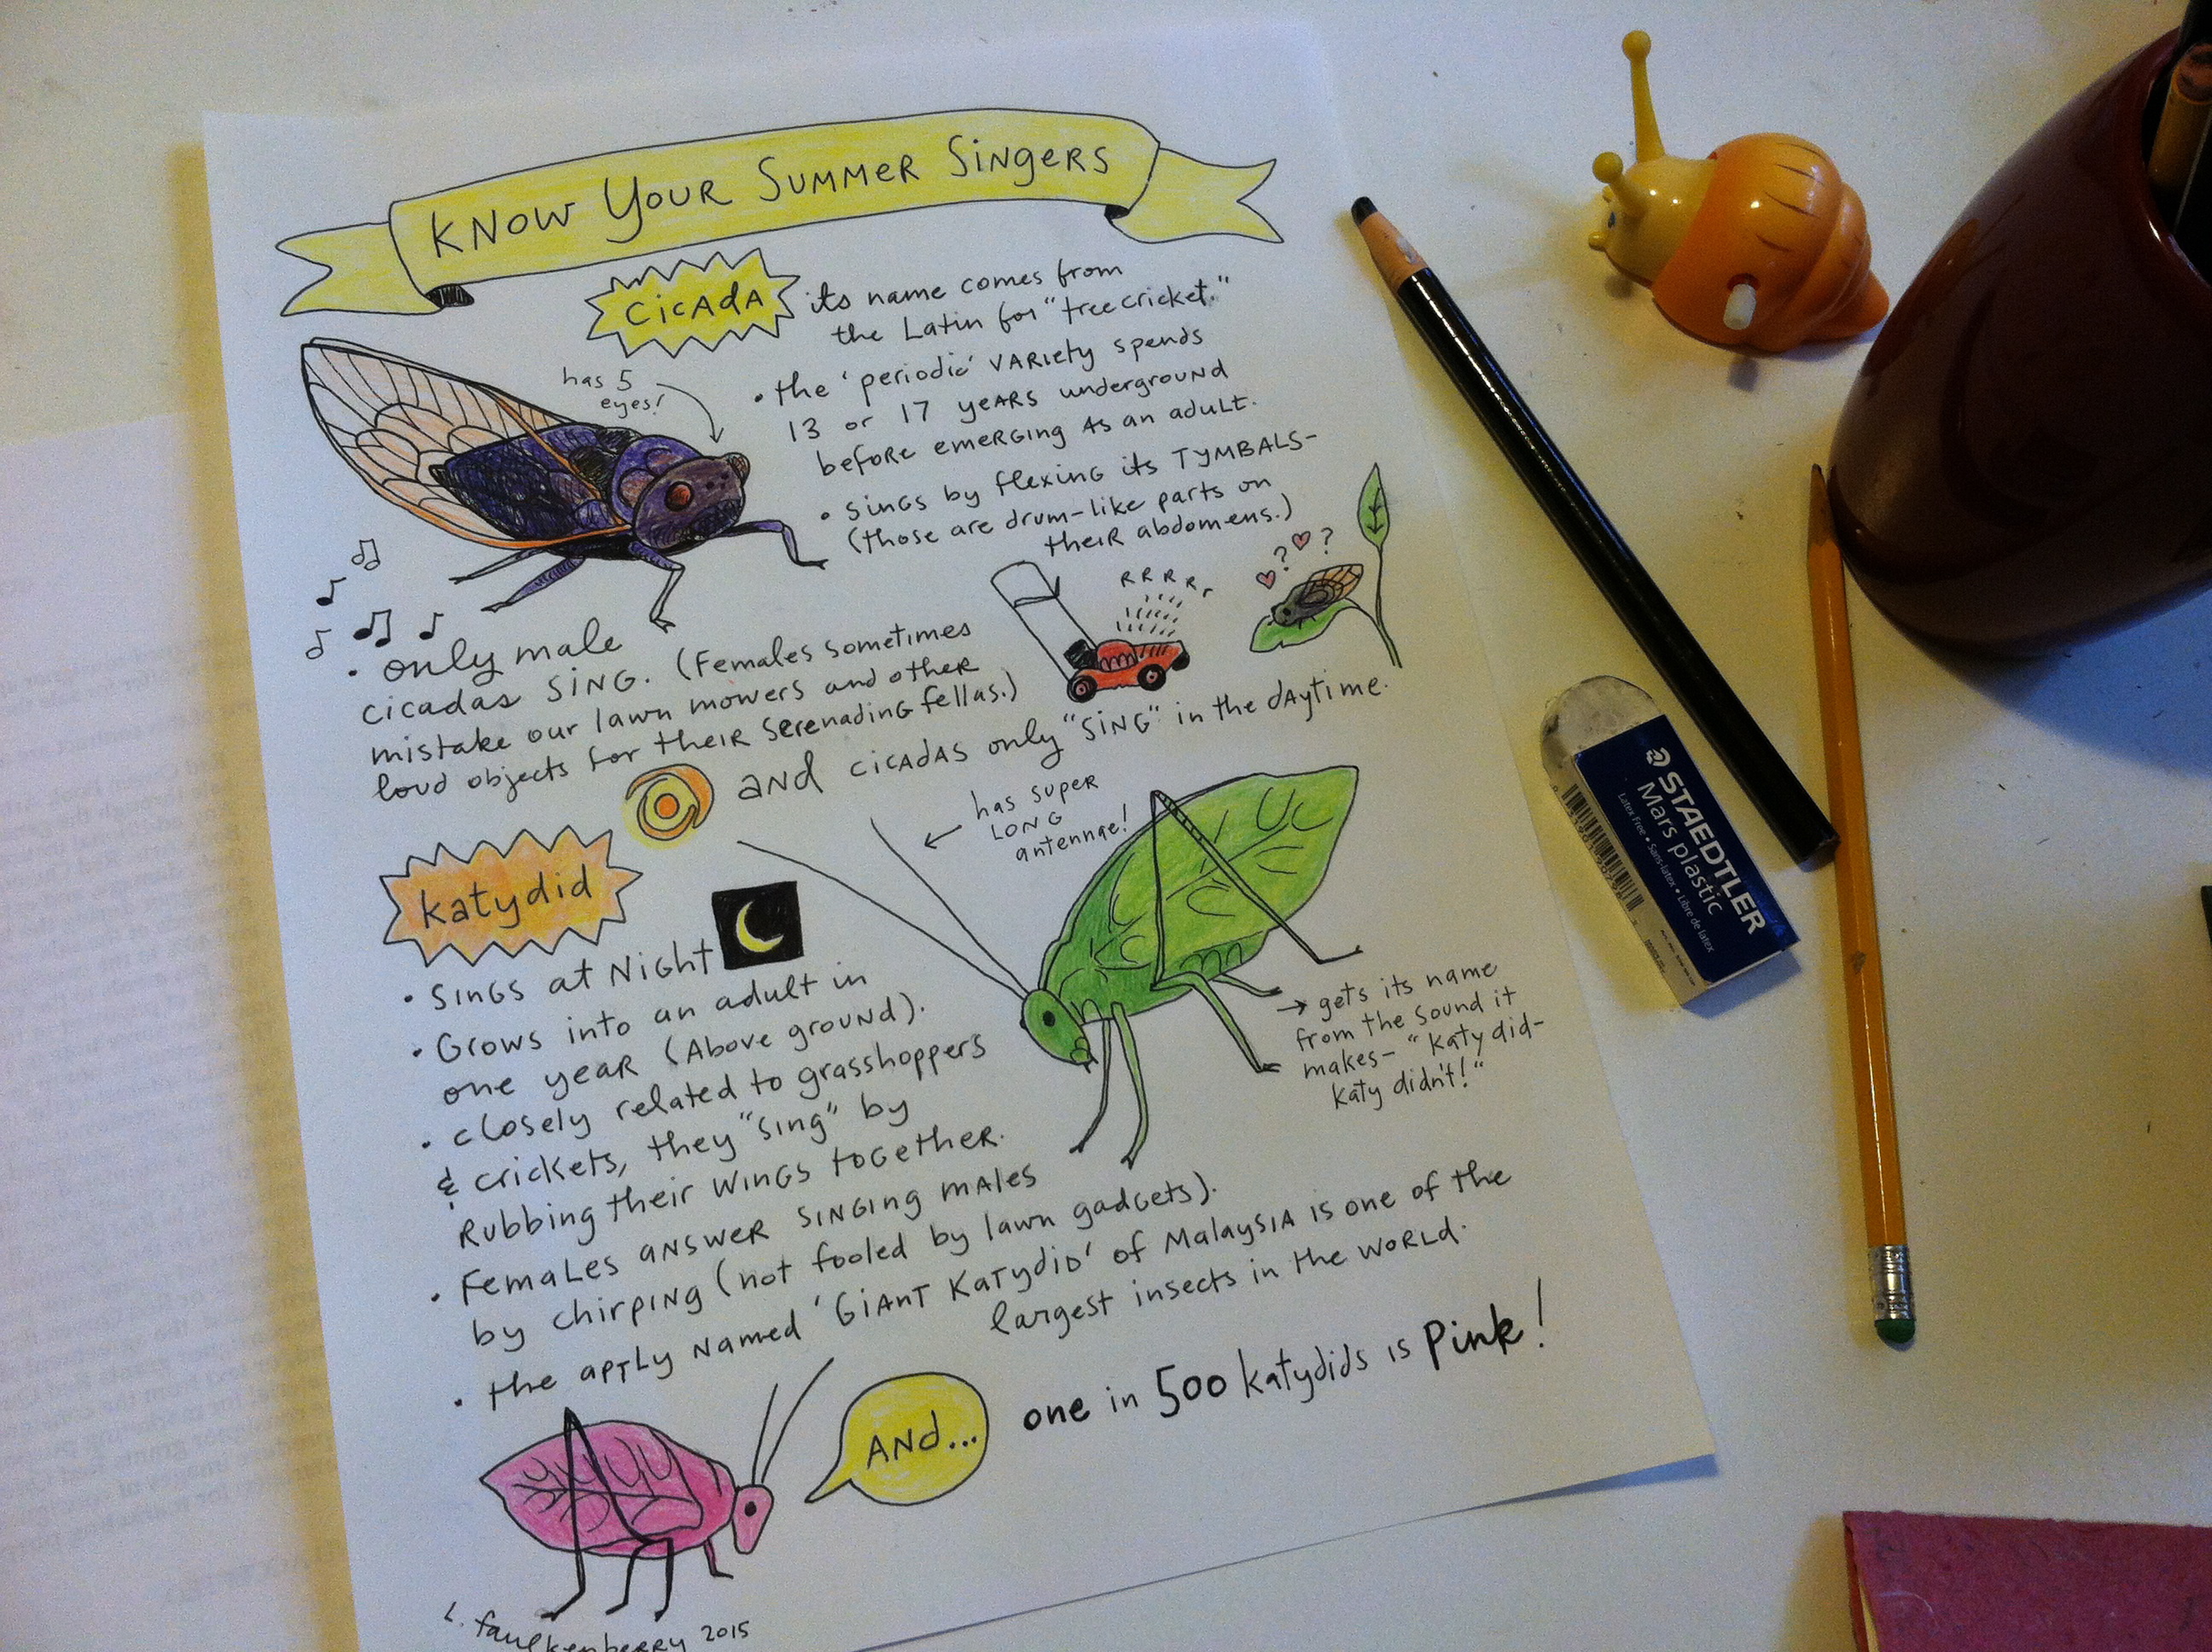 Know Your Summer Singers
Cicada
its name comes from
the Latin for "tree cricket."
has 5
eyes!
• the 'periodic' variety spends
13 or 17 years underground
before emerging as an adult.
• sings by flexing its TYMBALS-
(those are drum-like parts on
their abdomens.)
R R R R
? ?
• only male
cicadas sing. (Females sometimes
mistake our lawn mowers and other
loud objects for their serenading fellas.)
and cicadas only "sing" in the daytime.
has super
long
antennae!
katydid
• Sings at Night
• Grows into an adult in
one year (Above ground).
• closely related to grasshoppers
& crickets, they "sing" by
Rubbing their wings together.
→ gets its name
from the sound it
makes- "Katy did-
Katy didn't!"
• Females answer singing males
by chirping (not fooled by lawn gadgets).
• the aptly named 'Giant Katydid' of Malaysia is one of the
largest insects in the world.
And...
one in 500 katydids is Pink!
L. faulkenberry 2015
STAEDTLER
Mars plastic
Latex Free • Sans-latex • Libre de latex